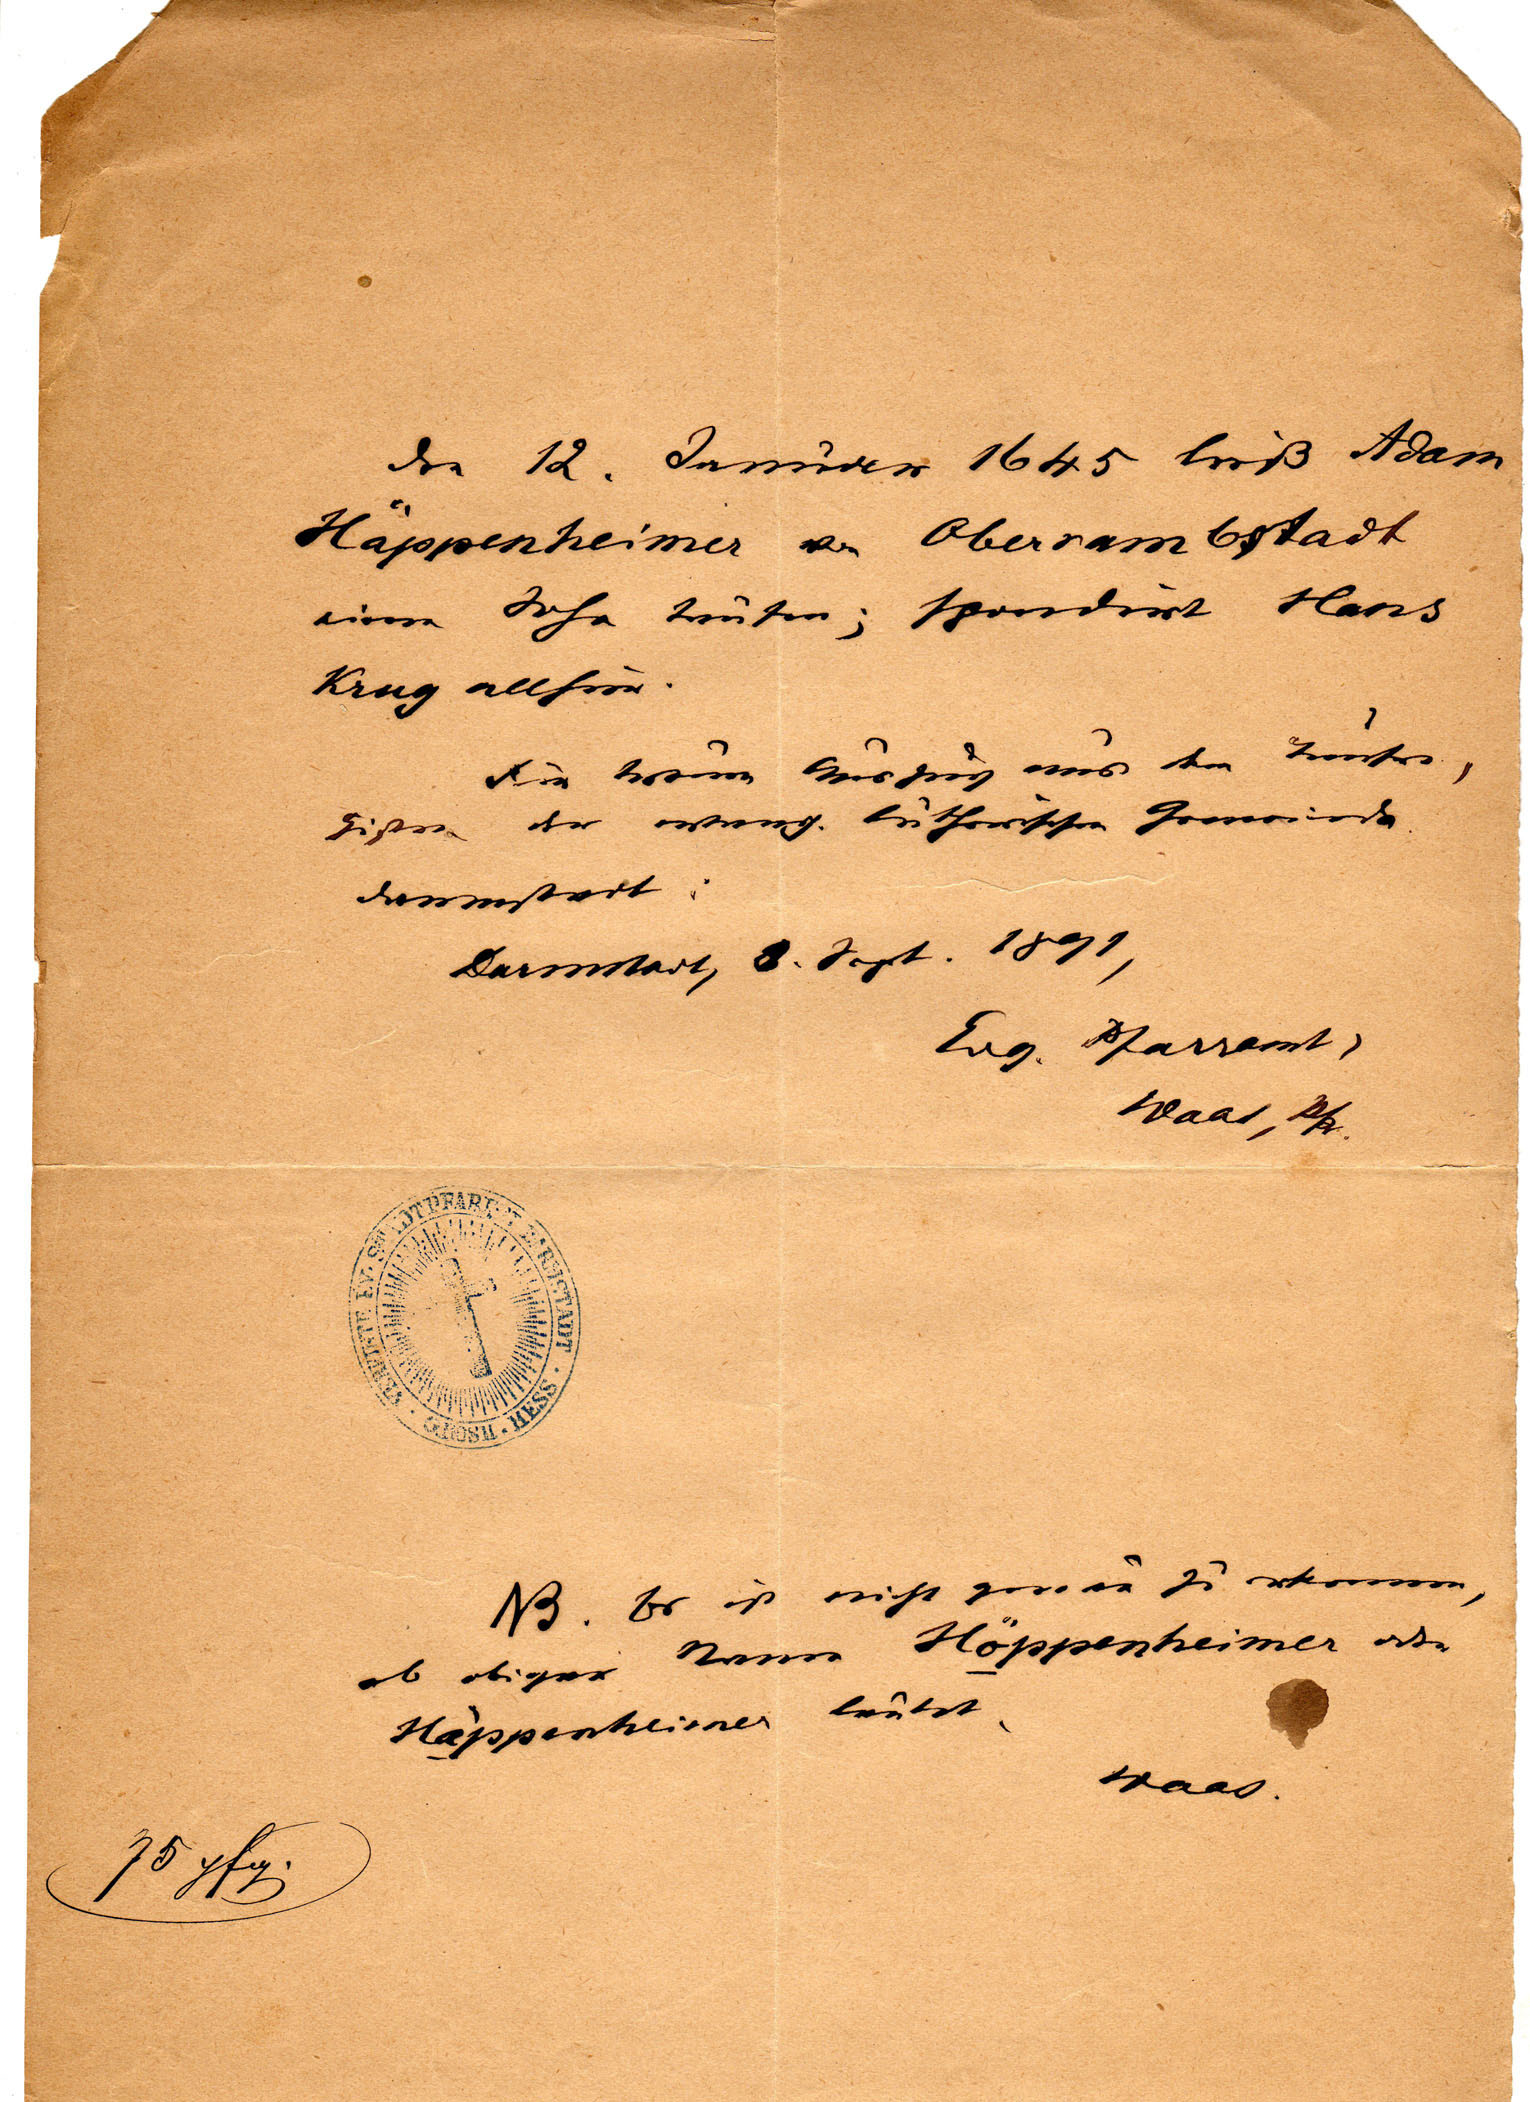 den 12. Januar 1645 ließ Adam
Häppenheimer von Oberrambstadt
einen Sohn taufen; spondirt Hans
Krug allhier.
Für treuen Auszug aus den Taufre-
gistern der evang. lutherischen Gemeinde
Darmstadt:
Darmstadt, 8. Sept. 1891,
Evg. Pfarramt,
Waas, Pfr.
VEREINTE EV. STADTPFARREI DARMSTADT · HESS · GROSH ·
NB. Es ist nicht genau zu erkennen,
ob obiger Name Höppenheimer oder
Häppenheimer lautet.
Waas.
75 pfg.